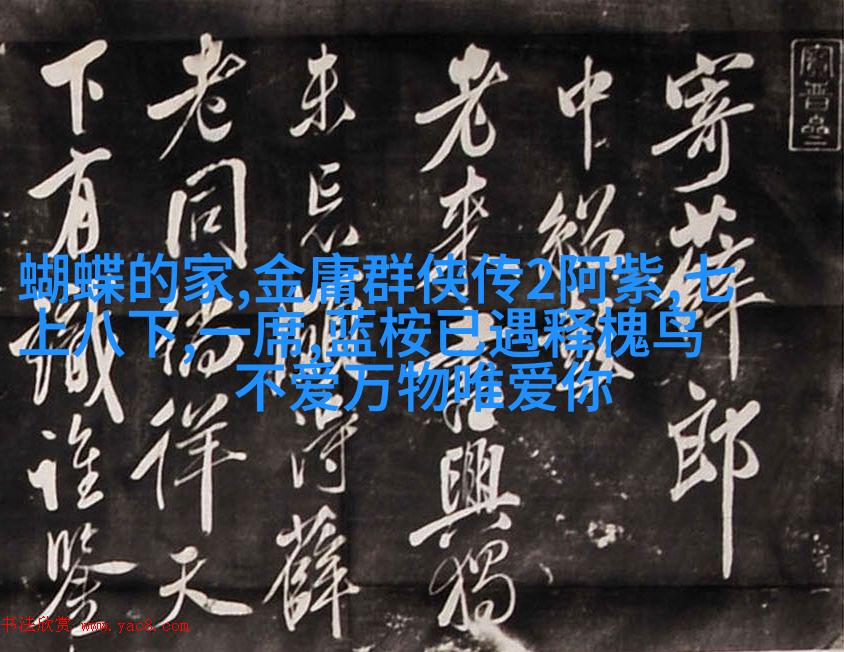 蝴蝶的家,金庸群侠传2阿紫,七
上八下,一席,蓝桉已遇释槐鸟
不爱万物唯爱你
寄薛郎
中紹彭
老来書興獨
未忘頗得薛
老同徜徉天
下有識誰鑒
书法欣赏 www.yac8.com